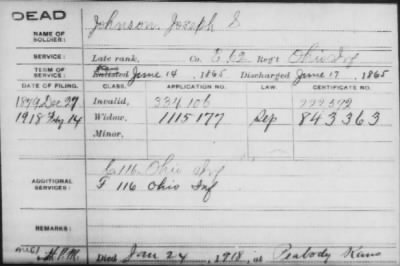 DEAD
NAME OF SOLDIER: Johnson Joseph S
SERVICE: Late rank, Co. E 62 Reg't Ohio Inf
TERM OF SERVICE: Enlisted June 14, 1865 Discharged June 17, 1865
DATE OF FILING. CLASS. APPLICATION NO. LAW. CERTIFICATE NO.
1879 Dec 27 Invalid, 334106 222572
1918 Feby 14 Widow, 1115177 Sep 843363
Minor,
ADDITIONAL SERVICES: C 116 Ohio Inf
F 116 Ohio Inf
REMARKS:
Died Jan 24, 1918, at Peabody Kans